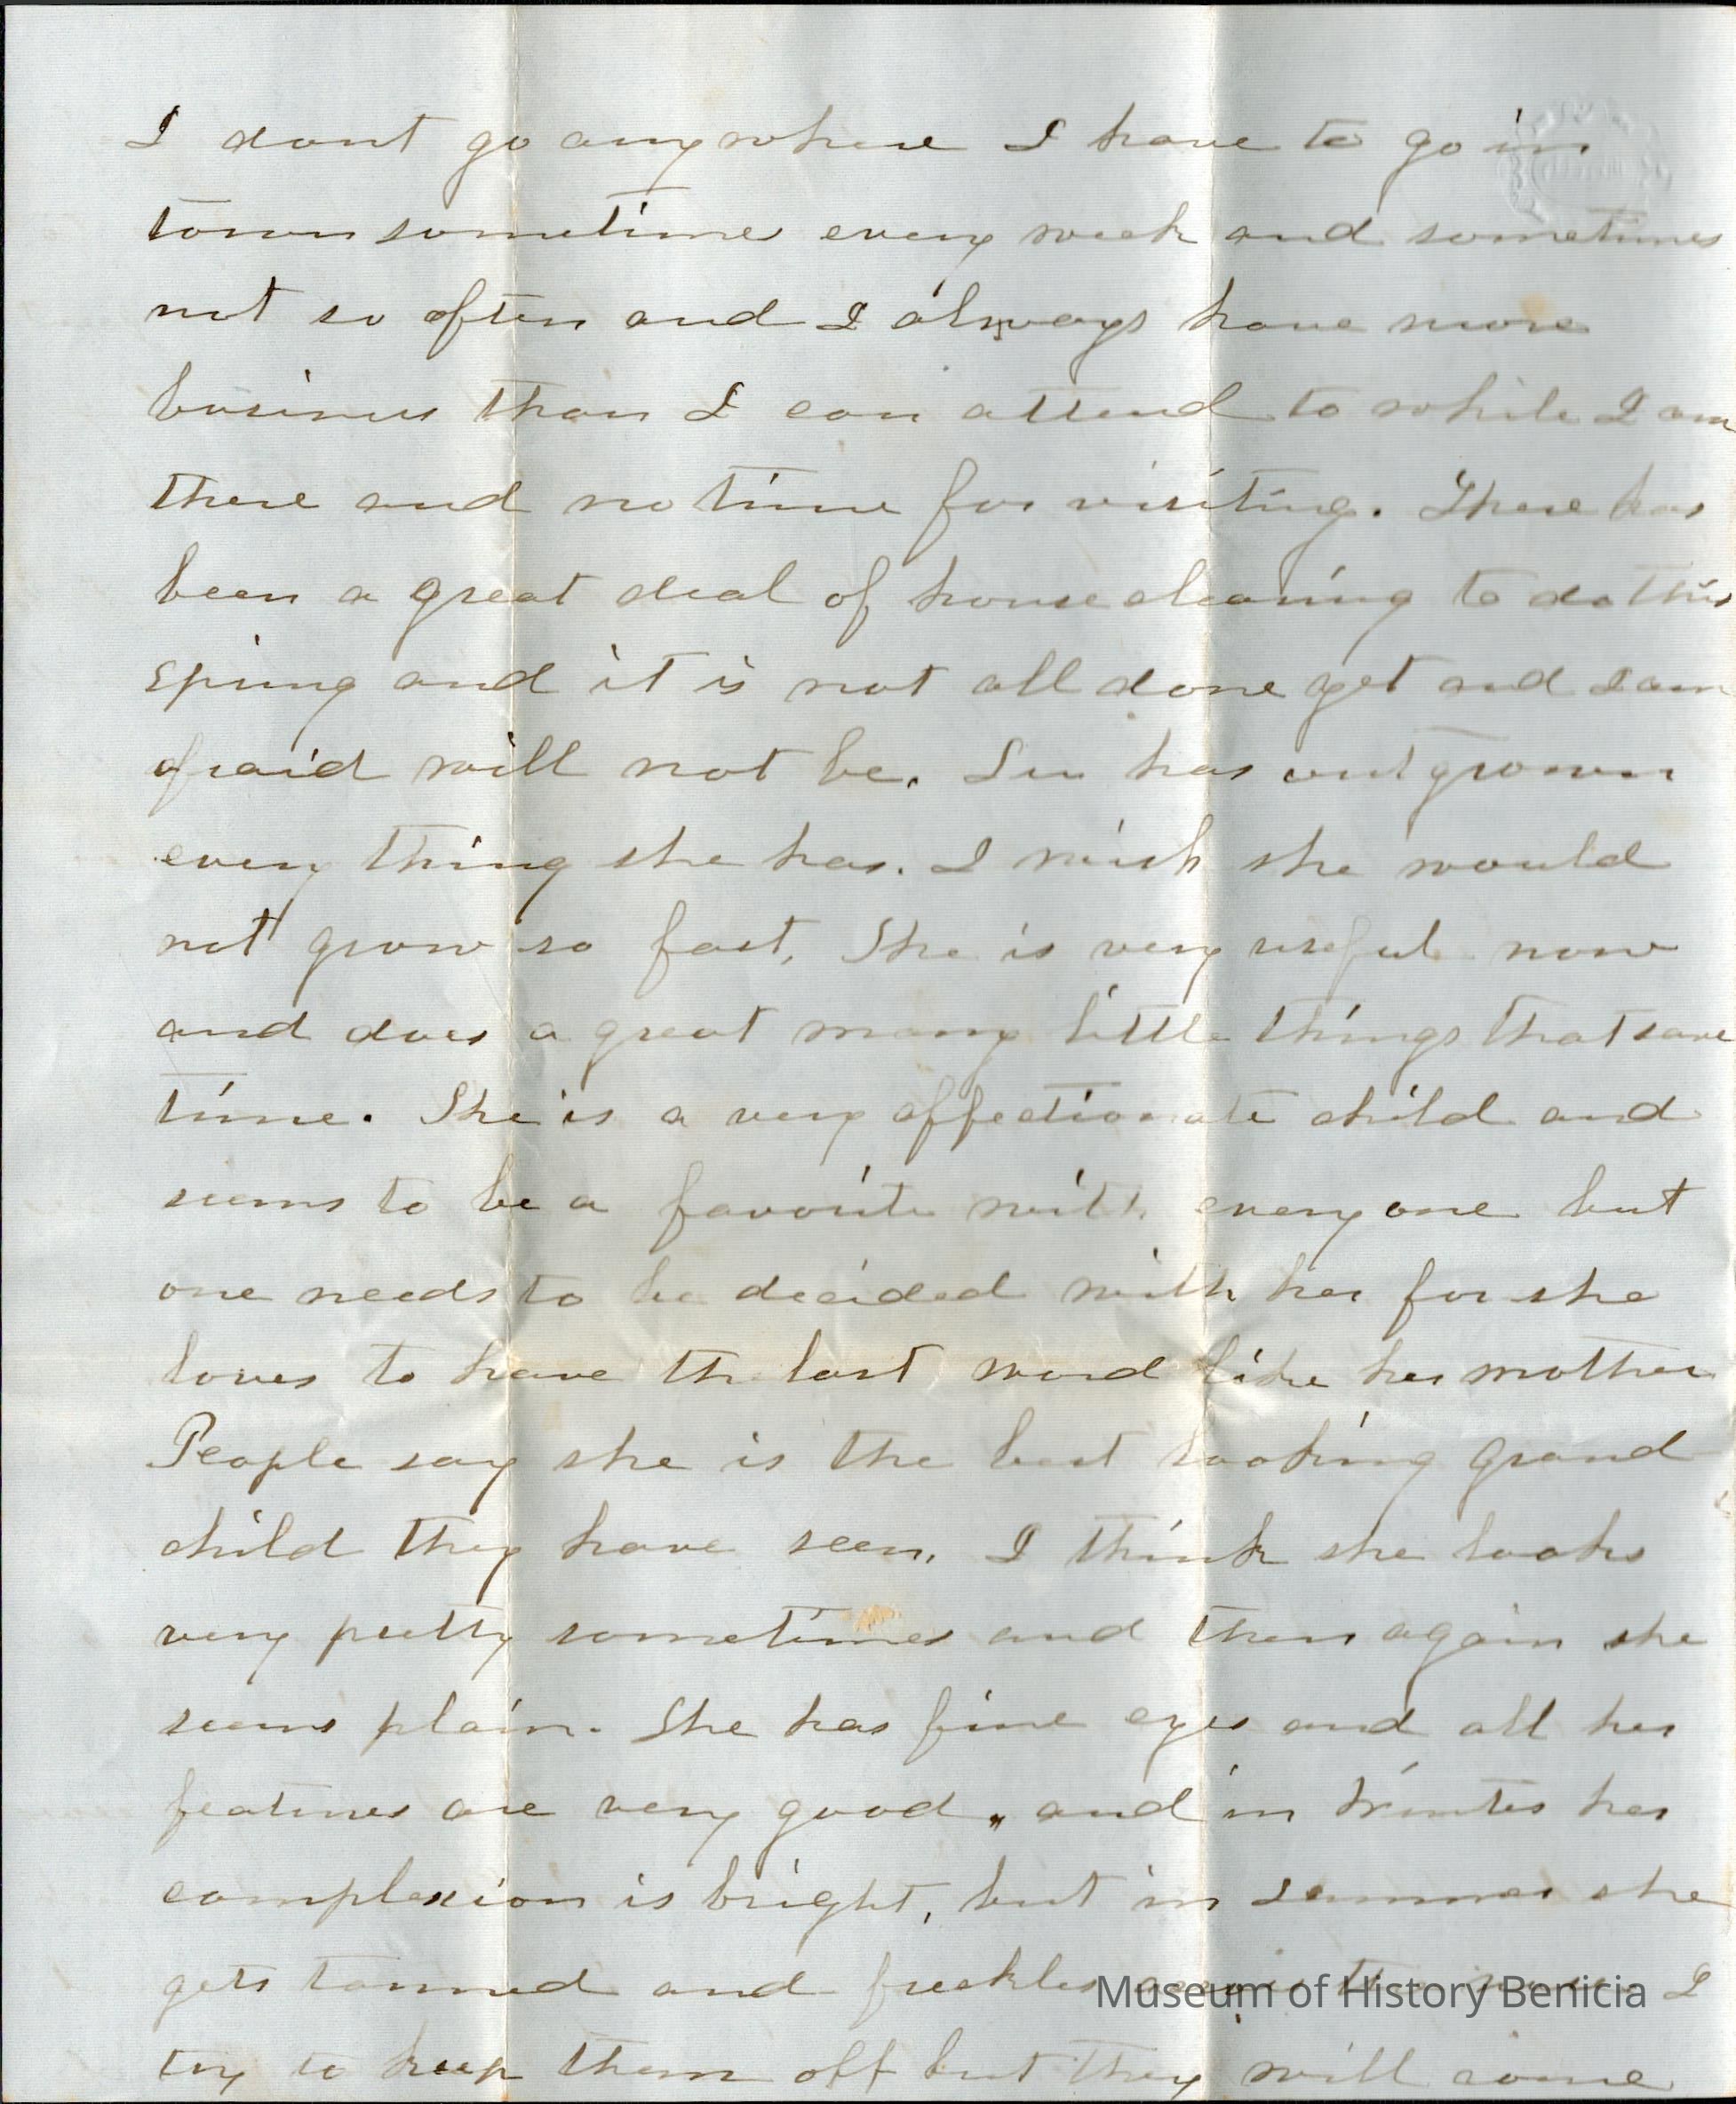 I dont go anywhere I have to go in
town sometime every week and sometimes
not so often and I always have more
business than I can attend to while I am
there and no time for visiting. There has
been a great deal of house cleaning to do this
spring and it is not all done yet and I am
afraid will not be. Lu has out grown
every thing she has. I wish she would
not grow so fast, She is very useful now
and does a great many little things that save
time. She is a very affectionate child and
seems to be a favorite with every one but
one needs to be decided with her for she
loves to have the last word like her mother
People say she is the best looking grand
child they have seen, I think she looks
very pretty sometimes and then again she
seems plain. She has fine eyes and all her
features are very good, and in Winter her
complexion is bright, but in summer she
gets tanned and freckles I
Museum of History Benicia
try to keep them off but they will come